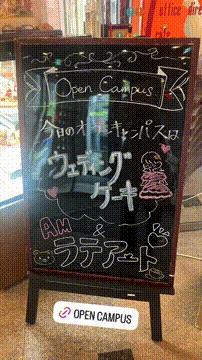 office dire
cafe
Open Campus
今日のオープンキャンパスは
ウェディング
ケーキ
&
AM
ラテアート
OPEN CAMPUS